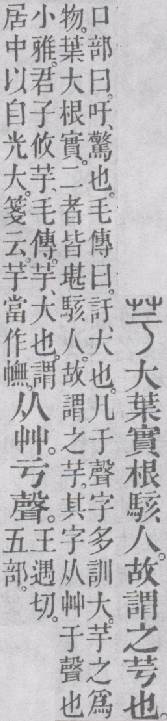 芌大葉實根駭人。故謂之芌也
口部曰。吁、驚也。毛傳曰。訏、大也。凡于聲字多訓大。芋之爲
物。葉大根實。二者皆堪駭人。故謂之芋。其字从艸于聲也
小雅。君子攸芋。毛傳。芋、大也。謂
居中以自光大。箋云。芋當作幠。
从艸。亏聲。
王遇切。
五部。